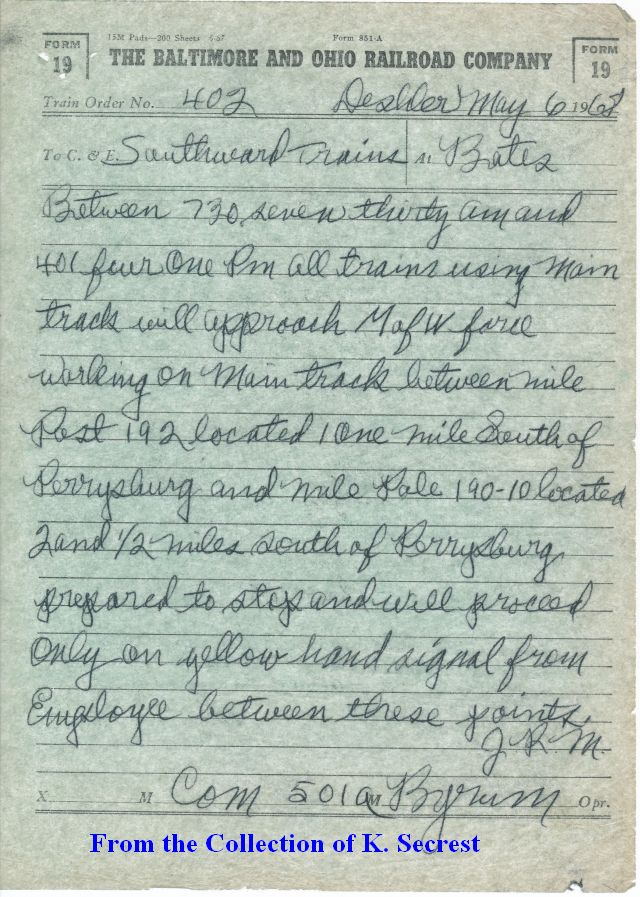 15M Pads—200 Sheets 6-67 Form 851-A
FORM 19
THE BALTIMORE AND OHIO RAILROAD COMPANY
FORM 19
Train Order No. 402 Deshler May 6 1968
To C. & E. Southward Trains At Bates
Between 730 seven thirty am and
401 four One Pm all trains using Main
track will approach M of W force
working on Main track between mile
Post 192 located 1 One mile South of
Perrysburg and mile Pole 190-10 located
2 and 1/2 miles south of Perrysburg
prepared to stop and will proceed
Only on yellow hand signal from
Employee between these points.
J.R.M.
X M Com 501 a M Byrum Opr.
From the Collection of K. Secrest